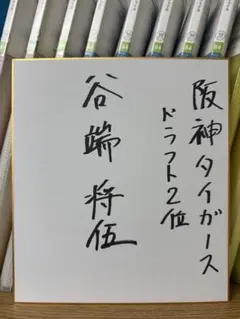 阪神タイガース
ドラフト2位
谷端将伍